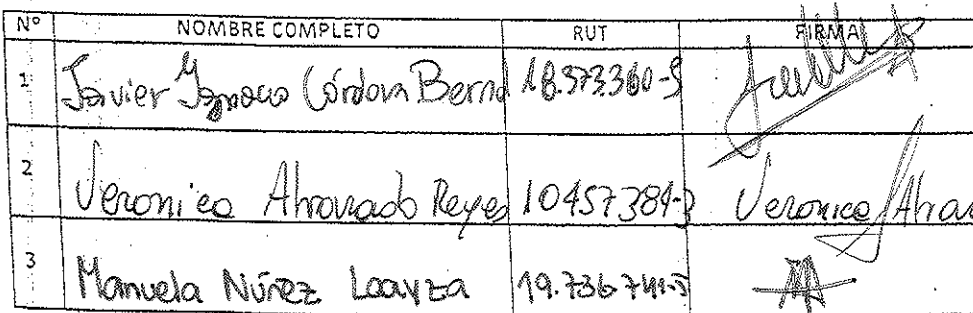 Nº NOMBRE COMPLETO RUT FIRMA
1 Javier Ignacio Córdova Bernal 18.573.360-5
2 Veronica Reyes 10457384-3 Veronica
3 Manuela Núñez Loayza 19.736.741-5